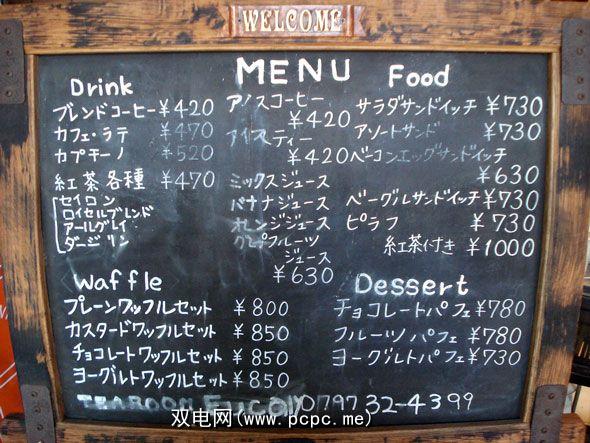 WELCOME
MENU
Drink
ブレンドコーヒー ¥420
カフェ・ラテ ¥470
カプチーノ ¥520
紅茶各種 ¥470
セイロン
ロイヤルブレンド
アールグレイ
ダージリン
アイスコーヒー
¥420
アイスティー
¥420
ミックスジュース
バナナジュース
オレンジジュース
グレープフルーツ
ジュース
¥630
Food
サラダサンドイッチ ¥730
アソートサンド ¥730
ベーコンエッグサンドイッチ
¥630
ベーグルサンドイッチ ¥730
ピラフ ¥730
紅茶付き ¥1000
Waffle
プレーンワッフルセット ¥800
カスタードワッフルセット ¥850
チョコレートワッフルセット ¥850
ヨーグルトワッフルセット ¥850
Dessert
チョコレートパフェ ¥780
フルーツパフェ ¥780
ヨーグルトパフェ ¥730
TEAROOM 0797 32-4399
双电网(www.pcpc.me)